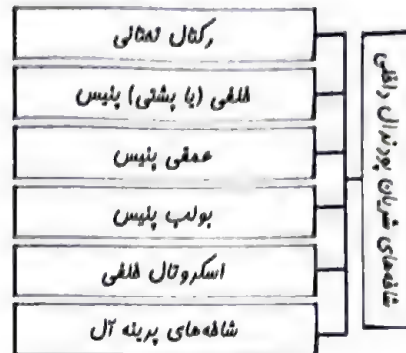 شاخه‌های شریان پودندال داخلی
رکتال تحتانی
خلفی (یا پشتی) پنیس
عمقی پنیس
بولب پنیس
اسکروتال خلفی
شاخه‌های پرینه آل